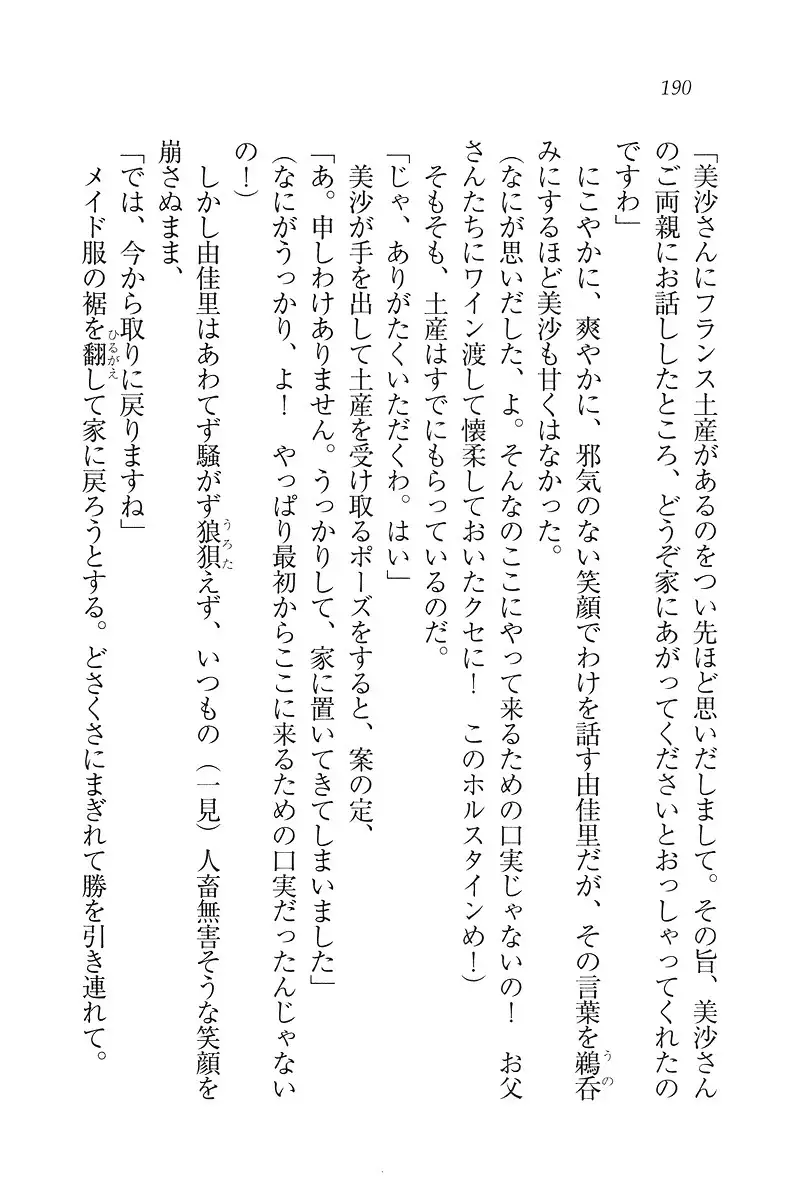 190
「美沙さんにフランス土産があるのをつい先ほど思いだしまして。その旨、美沙さん
のご両親にお話ししたところ、どうぞ家にあがってくださいとおっしゃってくれたの
ですわ」
　にこやかに、爽やかに、邪気のない笑顔でわけを話す由佳里だが、その言葉を鵜呑
みにするほど美沙も甘くはなかった。
（なにが思いだした、よ。そんなのここにやって来るための口実じゃないの！　お父
さんたちにワイン渡して懐柔しておいたクセに！　このホルスタインめ！）
　そもそも、土産はすでにもらっているのだ。
「じゃ、ありがたくいただくわ。はい」
　美沙が手を出して土産を受け取るポーズをすると、案の定、
「あ。申しわけありません。うっかりして、家に置いてきてしまいました」
（なにがうっかり、よ！　やっぱり最初からここに来るための口実だったんじゃない
の！）
　しかし由佳里はあわてず騒がず狼狽えず、いつもの（一見）人畜無害そうな笑顔を
崩さぬまま、
「では、今から取りに戻りますね」
　メイド服の裾を翻して家に戻ろうとする。どさくさにまぎれて勝を引き連れて。